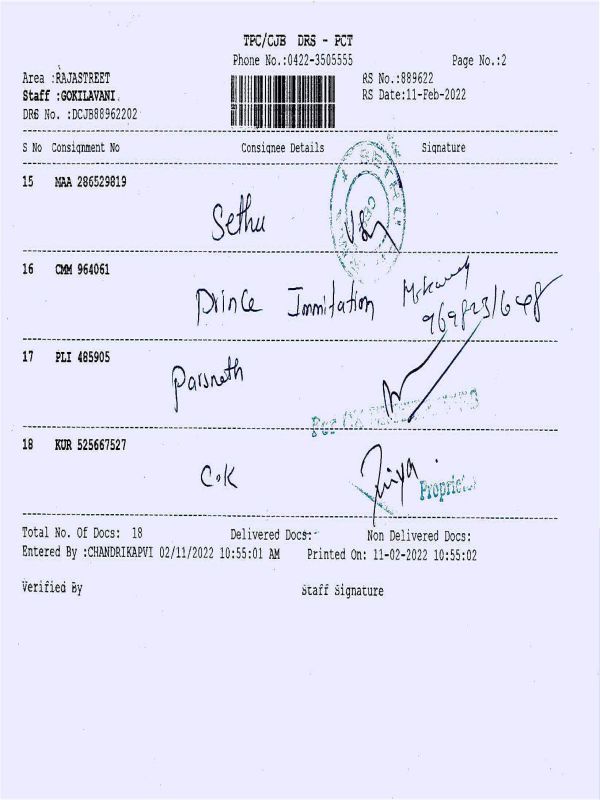 TPC/CJB DRS - PCT
Phone No.:0422-3505555 Page No.:2
Area :RAJASTREET RS No.:889622
Staff :GOKILAVANI RS Date:11-Feb-2022
DRS No. :DCJB88962202
S No Consignment No Consignee Details Signature
15 MAA 286529819
Sethu
16 CMM 964061
Prince Immitation
17 PLI 485905
Parsnath
18 KUR 525667527
C.K Priya.
Total No. Of Docs: 18 Delivered Docs:- Non Delivered Docs:
Entered By :CHANDRIKAPVI 02/11/2022 10:55:01 AM Printed On: 11-02-2022 10:55:02
Verified By Staff Signature